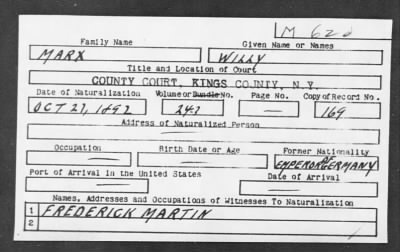 M 620
Family Name Given Name or Names
MARX WILLY
Title and Location of Court
COUNTY COURT, KINGS COUNTY, N.Y.
Date of Naturalization Volume or Bundle No. Page No. Copy of Record No.
OCT 27, 1892 247 — 169
Address of Naturalized Person
Occupation Birth Date or Age Former Nationality
— — EMPEROR OF GERMANY
Port of Arrival in the United States Date of Arrival
— —
Names, Addresses and Occupations of Witnesses To Naturalization
1 FREDERICK MARTIN
2